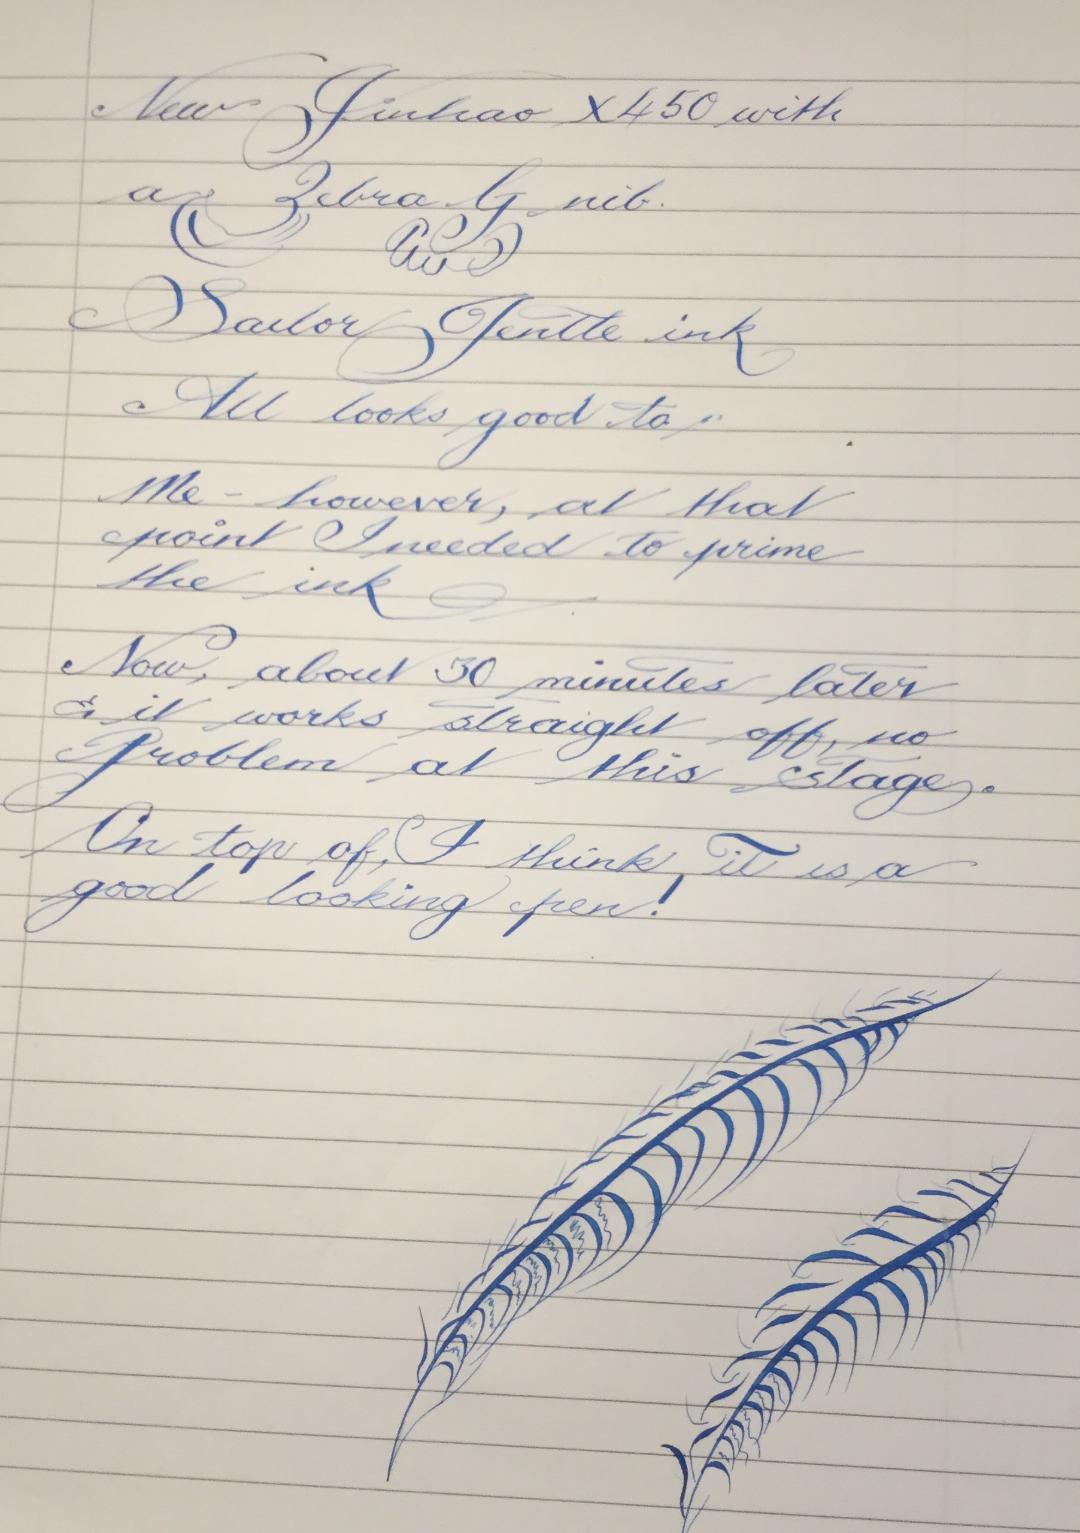 New Jinhao X450 with
a Zebra G nib.
Sailor Jentle ink
All looks good to
Me - however, at that
point I needed to prime
the ink
Now, about 30 minutes later
& it works straight off, no
Problem at this stage.
On top of, I think, it is a
good looking pen!